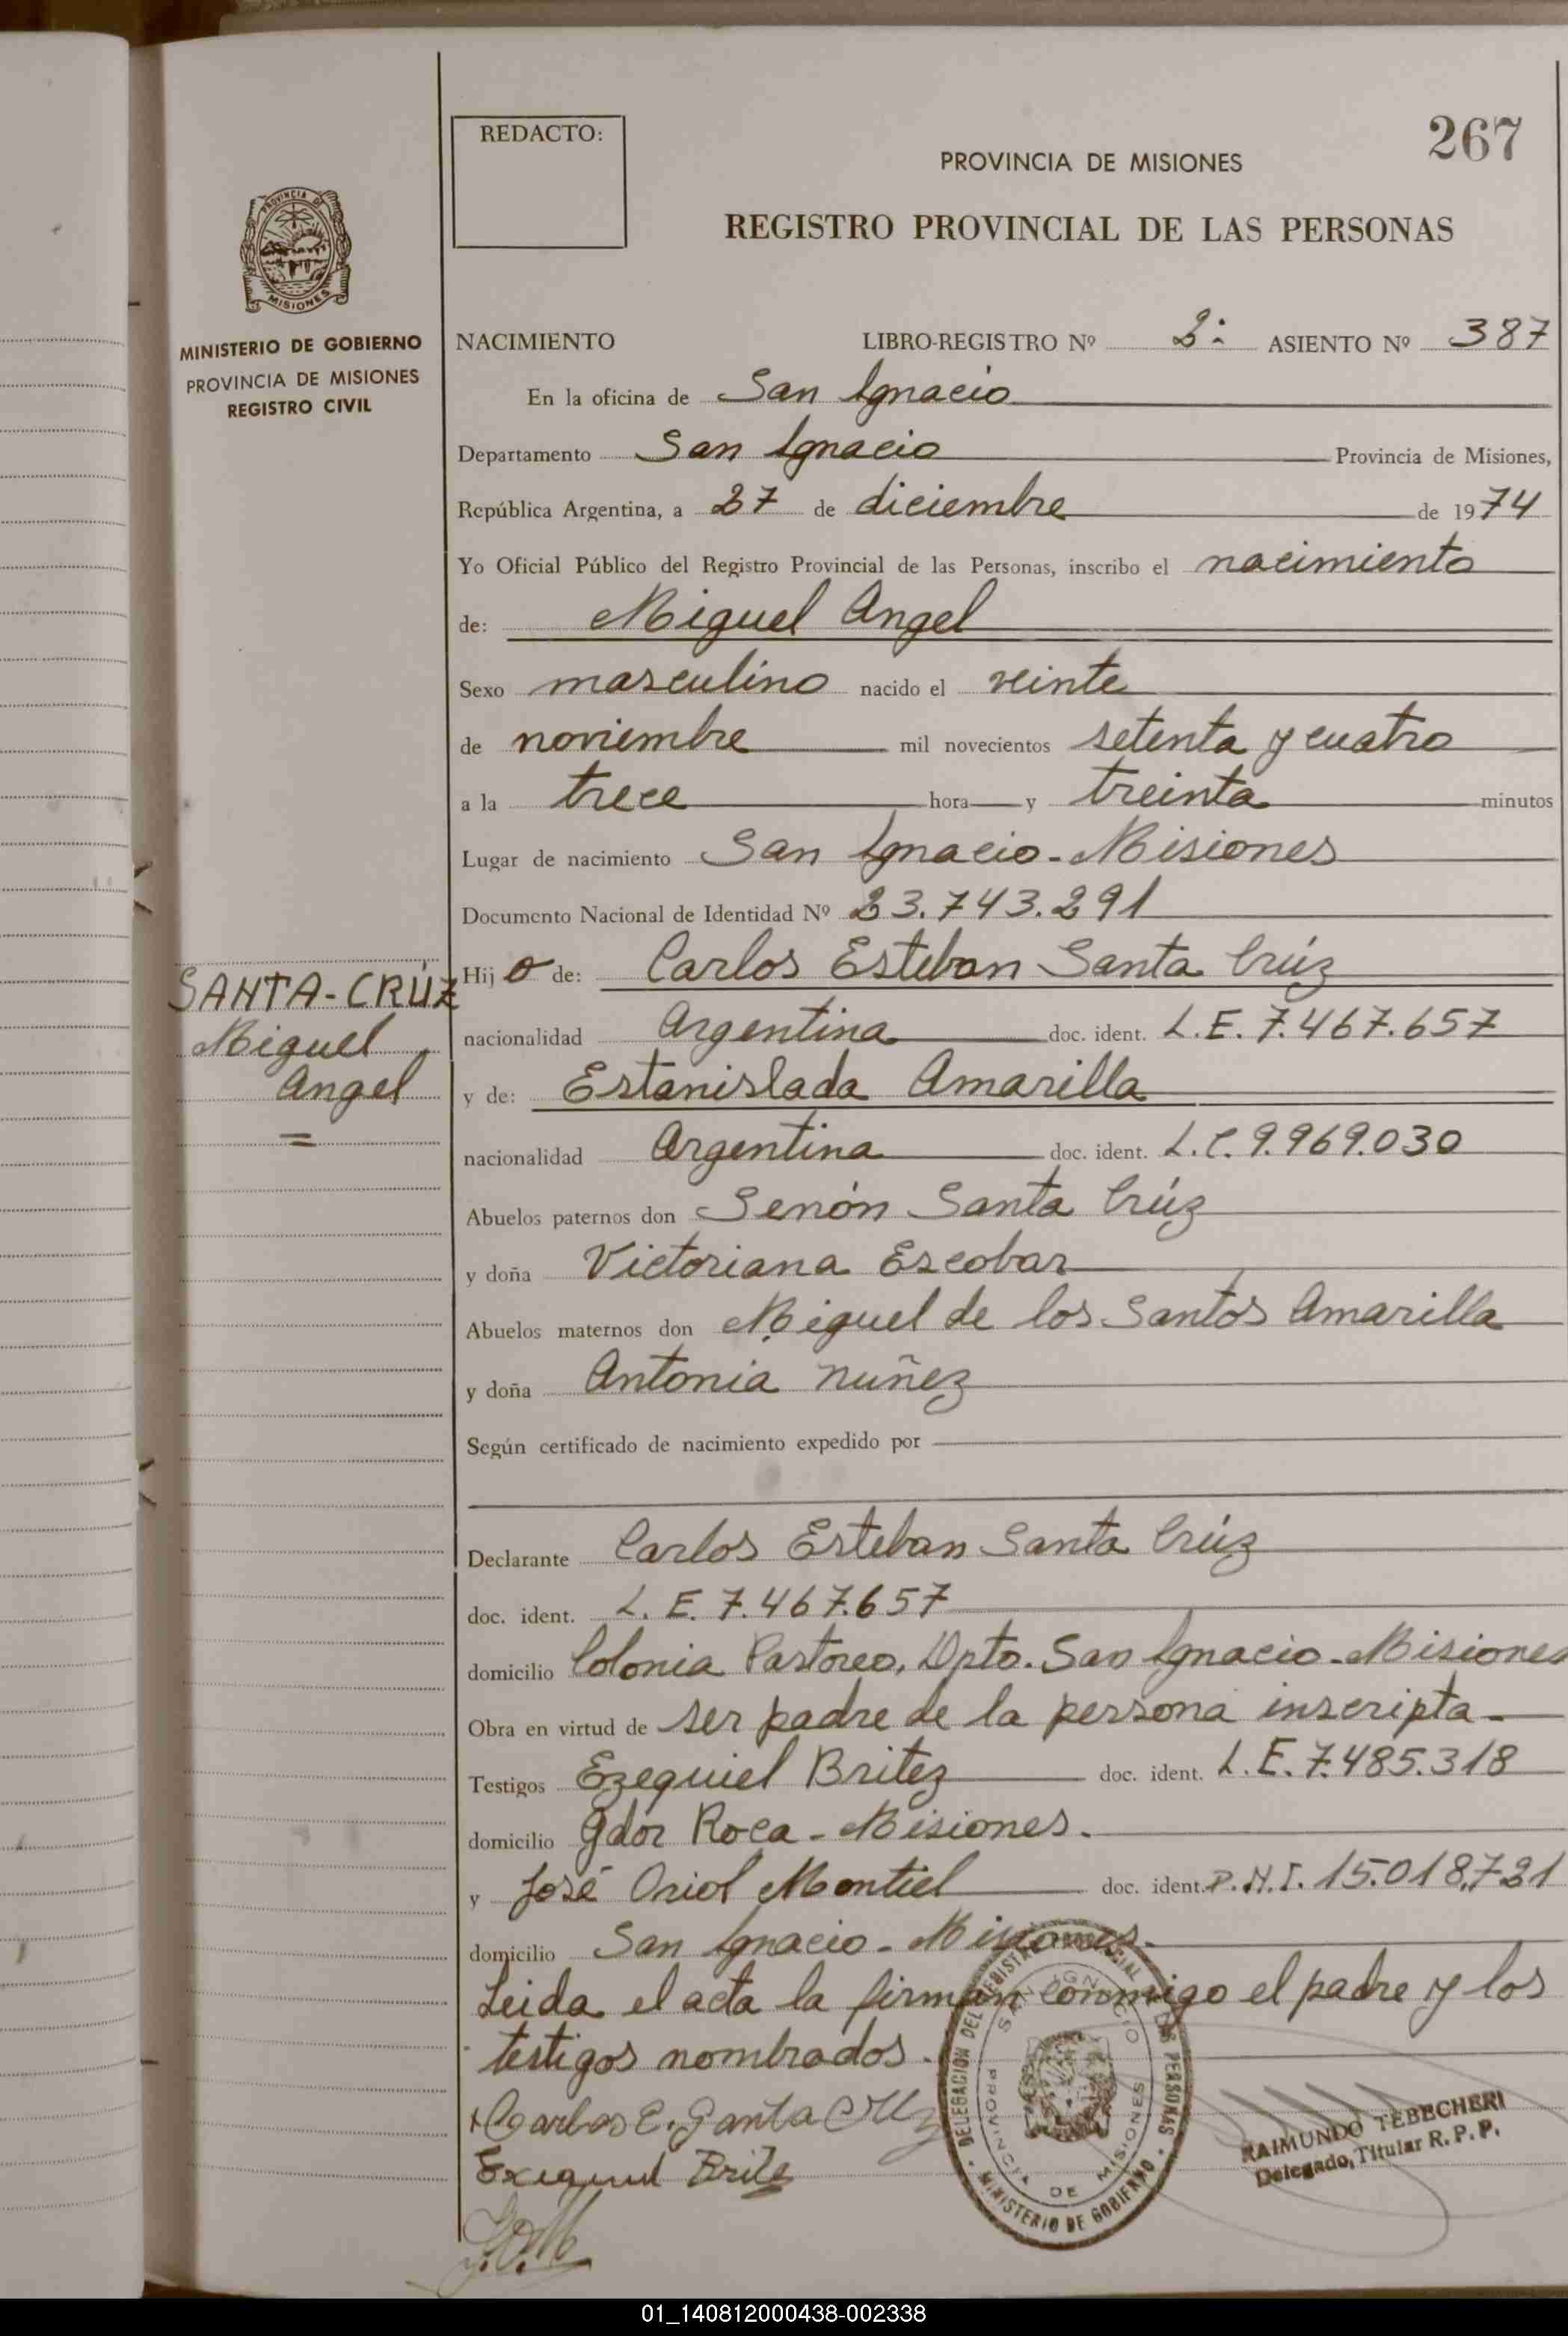 267
REDACTO:
PROVINCIA DE MISIONES
REGISTRO PROVINCIAL DE LAS PERSONAS
PROVINCIA DE
MISIONES
MINISTERIO DE GOBIERNO
PROVINCIA DE MISIONES
REGISTRO CIVIL
NACIMIENTO LIBRO-REGISTRO Nº 2: ASIENTO Nº 387
En la oficina de San Ignacio
Departamento San Ignacio Provincia de Misiones,
República Argentina, a 27 de diciembre de 1974
Yo Oficial Público del Registro Provincial de las Personas, inscribo el nacimiento
de: Miguel Angel
Sexo masculino nacido el veinte
de noviembre mil novecientos setenta y cuatro
a la trece hora y treinta minutos
Lugar de nacimiento San Ignacio - Misiones
Documento Nacional de Identidad Nº 23.743.291
SANTA-CRÚZ
Miguel
Angel
=
Hijo de: Carlos Esteban Santa Crúz
nacionalidad Argentina doc. ident. L.E. 7.467.657
y de: Estanislada Amarilla
nacionalidad Argentina doc. ident. L.C. 9.969.030
Abuelos paternos don Senón Santa Crúz
y doña Victoriana Escobar
Abuelos maternos don Miguel de los Santos Amarilla
y doña Antonia nuñez
Según certificado de nacimiento expedido por
Declarante Carlos Esteban Santa Crúz
doc. ident. L.E. 7.467.657
domicilio Colonia Pastoreo, Dpto. San Ignacio - Misiones
Obra en virtud de ser padre de la persona inscripta -
Testigos Ezequiel Britez doc. ident. L.E. 7.485.318
domicilio Gdor Roca - Misiones.
y José Oriol Montiel doc. ident. D.N.I. 15.018.721
domicilio San Ignacio - Misiones.
Leida el acta la firman conmigo el padre y los
testigos nombrados.
Carlos E. Santa Cruz
DELEGACION DEL REGISTRO PROVINCIAL DE LAS PERSONAS
SAN IGNACIO
PROVINCIA DE MISIONES
MINISTERIO DE GOBIERNO
RAIMUNDO TEBECHERI
Delegado, Titular R. P. P.
J.O.M
01_140812000438-002338